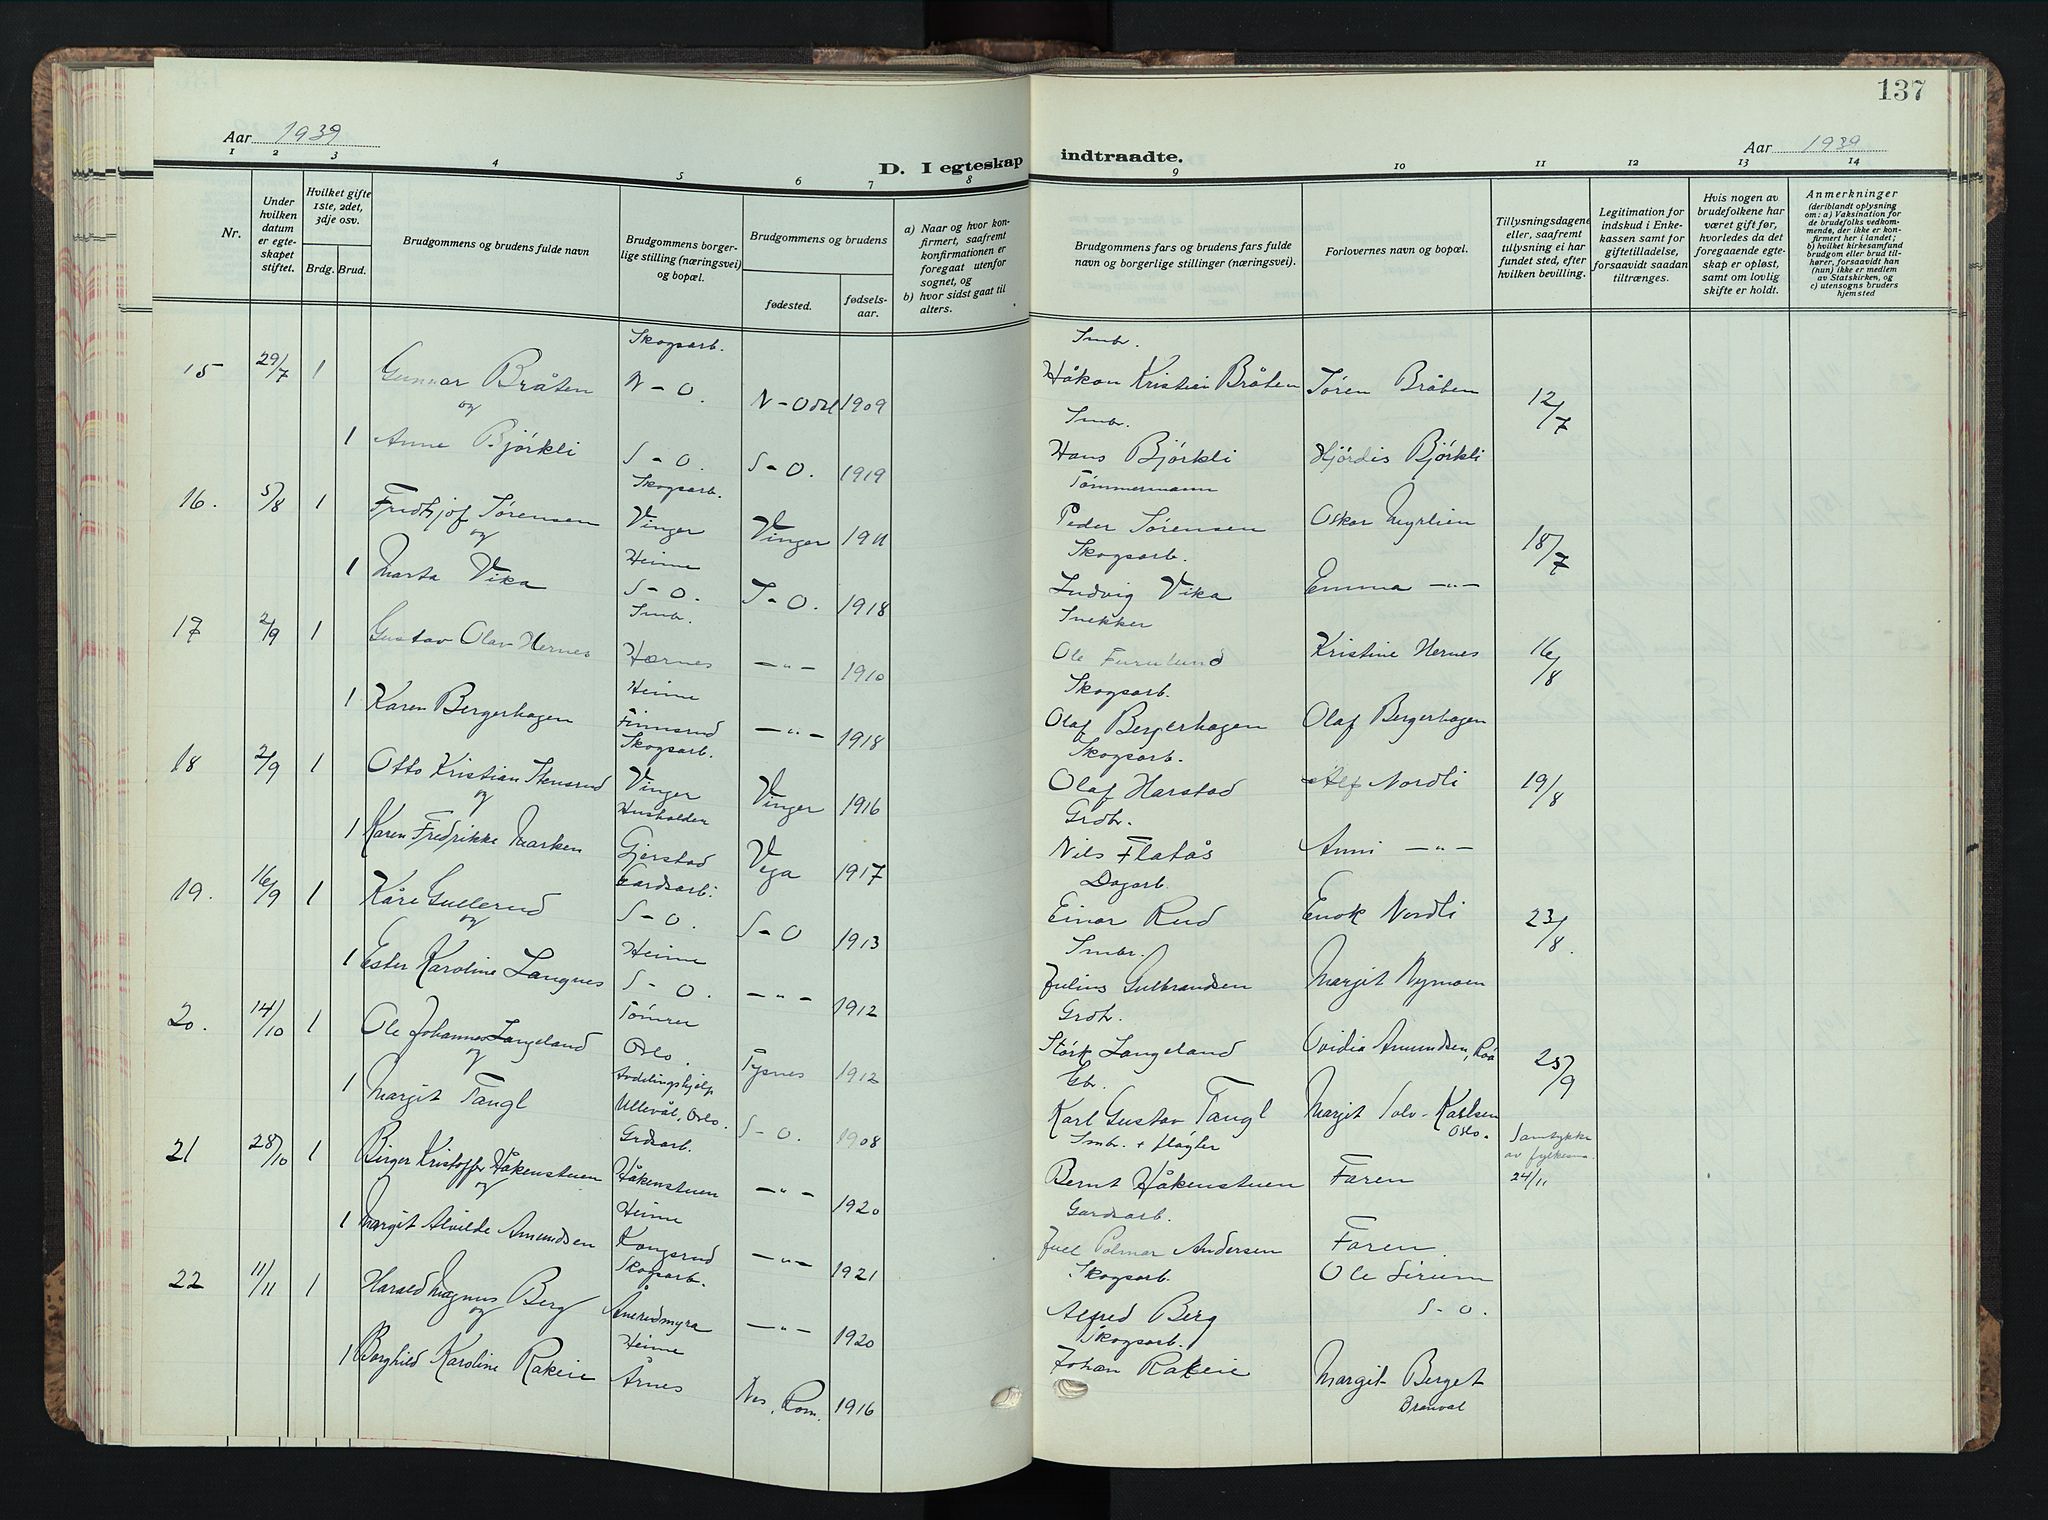 137
Aar 1939
D. I egteskap indtraadte.
Aar 1939
1 2 3 4 5 6 7 8 9 10 11 12 13 14
Nr.
Under hvilken datum er egteskapet stiftet.
Hvilket gifte 1ste, 2det, 3dje osv.
Brdg. Brud.
Brudgommens og brudens fulde navn
Brudgommens borgerlige stilling (næringsvei) og bopæl.
Brudgommens og brudens
fødested.
fødselsaar.
a) Naar og hvor konfirmert, saafremt konfirmationen er foregaat utenfor sognet, og
b) hvor sidst gaat til alters.
Brudgommens fars og brudens fars fulde navn og borgerlige stillinger (næringsvei).
Forlovernes navn og bopæl.
Tillysningsdagene eller, saafremt tillysning ei har fundet sted, efter hvilken bevilling.
Legitimation for indskud i Enkekassen samt for giftetilladelse, forsaavidt saadan tiltrænges.
Hvis nogen av brudefolkene har været gift før, hvorledes da det foregaaende egteskap er opløst, samt om lovlig skifte er holdt.
Anmerkninger
(deriblandt oplysning om: a) Vaksination for de brudefolks vedkommende, der ikke er konfirmert her i landet; b) hvilket kirkesamfund brudgom eller brud tilhører, forsaavidt han (hun) ikke er medlem av Statskirken, og c) utensogns bruders hjemsted
Skogsarb. Smbr.
15 29/7 1 Gunnar Bråten N-O. N-Odal 1909 Håkon Kristian Bråten Søren Bråten 12/7
og Smbr.
1 Anne Bjørkli S-O. S-O. 1919 Hans Bjørkli Hjørdis Bjørkli
Skogsarb. Tømmermann
16. 5/8 1 Fridtjof Sørensen Vinger Vinger 1911 Peder Sørensen Oskar Myrlien 18/7
og Heime Skogsarb.
1 Marta Vika S-O. S-O. 1918 Ludvig Vika Emma -"-
Smb. Snekker
17 2/9 1 Gustav Olav Hernes Hærnes -"- 1910 Ole Furulund Kristine Hernes 16/8
Heime Skogsarb.
1 Karen Bergerhagen Finnsrud -"- 1918 Olaf Bergerhagen Olaf Bergerhagen
Skogsarb. Skogsarb.
18 2/9 1 Otto Kristian Stensrud Vinger Vinger 1916 Olaf Harstad Alf Nordli 19/8
og Husholder Grdbr.
1 Karen Fredrikke Marken Gjerstad Vega 1917 Nils Flatås Anni -"-
Gardsarb. Dagarb.
19. 16/9 1 Kåre Gullerud S-O. S-O 1913 Einar Rud Enok Nordli 23/8.
og Heime Smbr.
1 Ester Karoline Langnes S-O. -"- 1912 Julius Gulbrandsen Margit Nymoen
Tømrer Grdbr.
20. 14/10 1 Ole Johannes Langeland Oslo. Tysnes 1912 Størk Langeland Ovidia Amundsen, Roa 25/9
og Avdelingshjelp Gbr.
1 Margit Tangl Ullevål, Oslo. S-O. 1908 Karl Gustav Tangl Margit Solv-Karlsen Oslo.
Grdsarb. Smbr. + fløgter Samtykke av fylkesm.
21 28/10 1 Birger Kristoffer Håkenstuen Håkenstuen -"- 1920 Bernt Håkenstuen Faren 24/11
og Heime Gardsarb.
1 Margit Alvilde Amundsen Kongsrud -"- 1921 Juel Polmar Andersen Faren.
Skogsarb. Skogsarb.
22 11/11 1 Harald Magnus Berg -"- 1920 Alfred Berg Ole Sirum S-O.
og Heime Skogsarb.
1 Borghild Karoline Rakeie Årnes Nes, Rom. 1916 Johan Rakeie Margit Berget